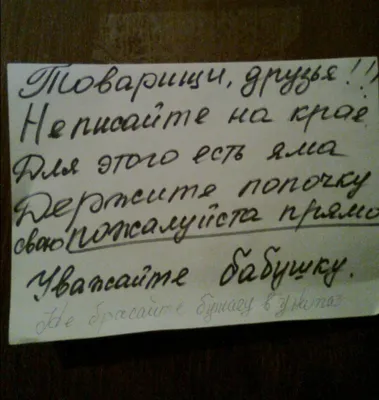 Товарищи, друзья!!!
Не писайте на крае
Для этого есть яма
Держите попочку
свою пожалуйста прямо
Уважайте бабушку.
Не бросайте бумагу в унитаз